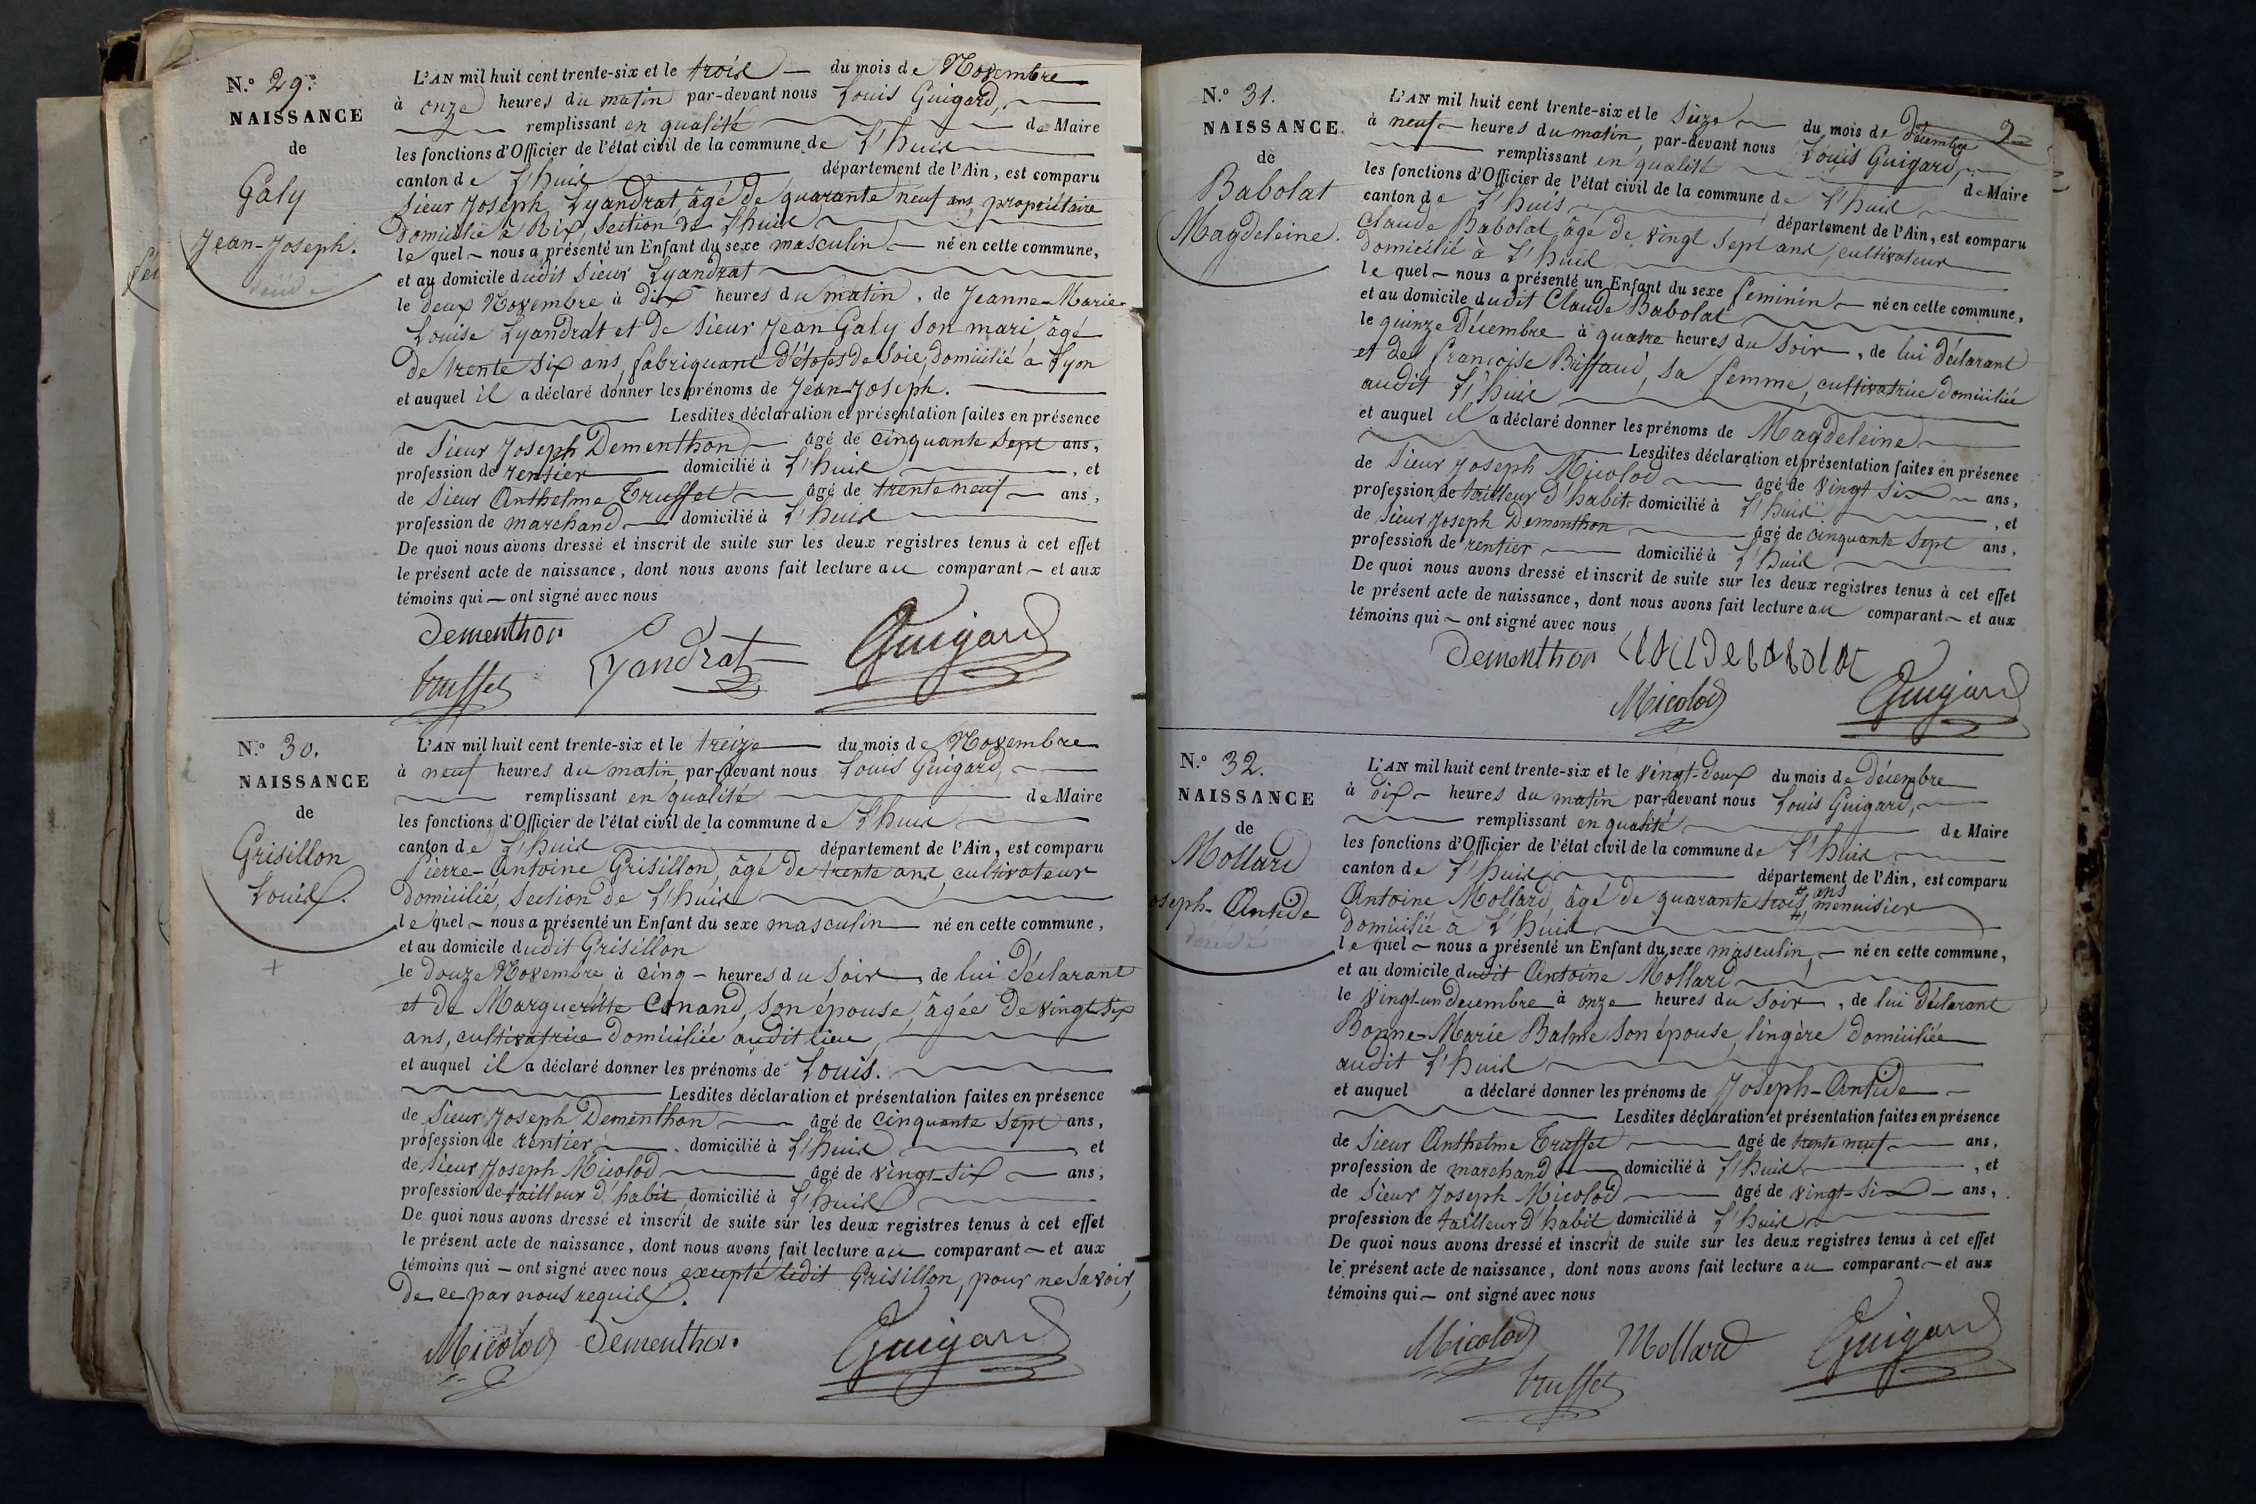 N.º 29.
NAISSANCE
de
Galy
Jean-Joseph.
L'AN mil huit cent trente-six et le trois du mois de Novembre
à onze heures du matin par-devant nous Louis Guigard,
remplissant en qualité de Maire
les fonctions d'Officier de l'état civil de la commune de L'huis
canton de L'huis département de l'Ain, est comparu
Sieur Joseph Lyandrat âgé de quarante neuf ans, propriétaire
domicilié à Rix, section de L'huis
lequel nous a présenté un Enfant du sexe masculin né en cette commune,
et au domicile dudit sieur Lyandrat
le deux Novembre à dix heures du matin, de Jeanne-Marie-
Louise Lyandrat et de sieur Jean Galy son mari âgé
de trente six ans, fabriquant d'étofes de soie, domicilié à Lyon
et auquel il a déclaré donner les prénoms de Jean-Joseph.
Lesdites déclaration et présentation faites en présence
de Sieur Joseph Dementhon âgé de cinquante sept ans,
profession de rentier domicilié à L'huis, et
de Sieur Anthelme Truffet âgé de trente neuf ans,
profession de marchand domicilié à L'huis
De quoi nous avons dressé et inscrit de suite sur les deux registres tenus à cet effet
le présent acte de naissance, dont nous avons fait lecture au comparant et aux
témoins qui ont signé avec nous
Dementhon
Lyandrat
Guigard
truffet
N.º 30.
NAISSANCE
de
Grisillon
Louis.
L'AN mil huit cent trente-six et le treize du mois de Novembre
à neuf heures du matin, par-devant nous Louis Guigard,
remplissant en qualité de Maire
les fonctions d'Officier de l'état civil de la commune de L'huis
canton de L'huis département de l'Ain, est comparu
Pierre-Antoine Grisillon, âgé de trente ans, cultivateur
domicilié, section de L'huis
lequel nous a présenté un Enfant du sexe masculin né en cette commune,
et au domicile dudit Grisillon
le douze Novembre à cinq heures du soir, de lui déclarant
et de Margueritte Conand, son épouse, âgée de vingt six
ans, cultivatrice domiciliée audit lieu,
et auquel il a déclaré donner les prénoms de Louis.
Lesdites déclaration et présentation faites en présence
de Sieur Joseph Dementhon âgé de cinquante sept ans,
profession de rentier, domicilié à L'huis, et
de Sieur Joseph Micolod âgé de vingt-six ans,
profession de tailleur d'habit, domicilié à L'huis
De quoi nous avons dressé et inscrit de suite sur les deux registres tenus à cet effet
le présent acte de naissance, dont nous avons fait lecture au comparant et aux
témoins qui ont signé avec nous excepté ledit Grisillon, pour ne savoir,
de ce par nous requis.
Micolod Dementhon
Guigard
N.º 31.
NAISSANCE
de
Babolat
Magdeleine.
L'AN mil huit cent trente-six et le seize du mois de Décembre
à neuf heures du matin, par-devant nous Louis Guigard,
remplissant en qualité de Maire
les fonctions d'Officier de l'état civil de la commune de L'huis
canton de L'huis département de l'Ain, est comparu
Claude Babolat âgé de vingt sept ans, cultivateur
domicilié à L'huis
lequel nous a présenté un Enfant du sexe feminin né en cette commune,
et au domicile dudit Claude Babolat
le quinze Décembre à quatre heures du soir, de lui déclarant
et de françoise Buffaud, sa femme, cultivatrice domiciliée
audit L'huis
et auquel il a déclaré donner les prénoms de Magdeleine
Lesdites déclaration et présentation faites en présence
de Sieur Joseph Micolod âgé de vingt six ans,
profession de tailleur d'habit domicilié à L'huis, et
de Sieur Joseph Dementhon âgé de cinquante sept ans,
profession de rentier domicilié à L'huis
De quoi nous avons dressé et inscrit de suite sur les deux registres tenus à cet effet
le présent acte de naissance, dont nous avons fait lecture au comparant et aux
témoins qui ont signé avec nous
Dementhon
Micolod
Guigard
N.º 32.
NAISSANCE
de
Mollard
oseph-Antide
L'AN mil huit cent trente-six et le vingt-deux du mois de Décembre
à dix heures du matin par-devant nous Louis Guigard,
remplissant en qualité de Maire
les fonctions d'Officier de l'état civil de la commune de L'huis
canton de L'huis département de l'Ain, est comparu
Antoine Mollard, âgé de quarante trois ans menuisier
domicilié à L'huis
lequel nous a présenté un Enfant du sexe masculin, né en cette commune,
et au domicile dudit Antoine Mollard
le vingt-un decembre à onze heures du soir, de lui déclarant
Bonne-Marie Balme son épouse, lingère domiciliée
audit L'huis
et auquel a déclaré donner les prénoms de Joseph-Antide
Lesdites déclaration et présentation faites en présence
de Sieur Anthelme Truffet âgé de trente neuf ans,
profession de marchand domicilié à L'huis, et
de Sieur Joseph Micolod âgé de vingt-six ans,
profession de tailleur d'habit domicilié à L'huis
De quoi nous avons dressé et inscrit de suite sur les deux registres tenus à cet effet
le présent acte de naissance, dont nous avons fait lecture au comparant et aux
témoins qui ont signé avec nous
Micolod Mollard Guigard
truffet